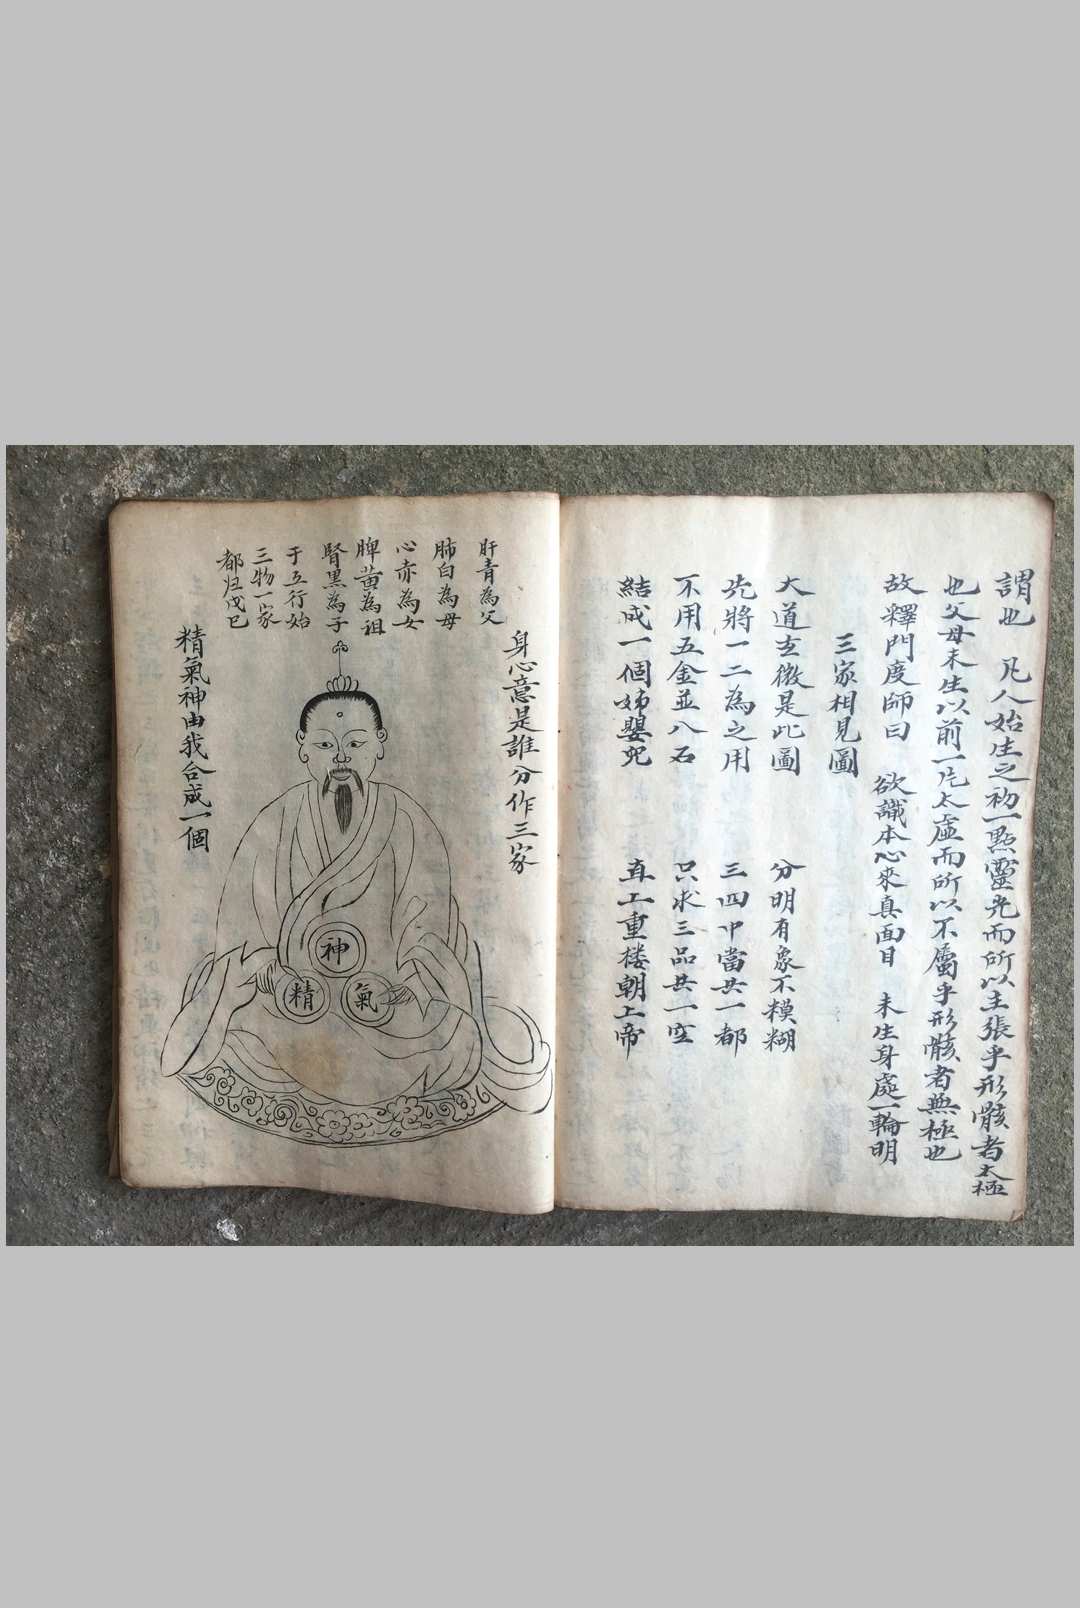 謂也　凡人始生之初一點靈光而所以主張乎形骸者太極
也父母未生以前一片太虛而所以不屬乎形骸者無極也
故釋門度師曰　欲識本心來真面目　未生身處一輪明
三家相見圖
大道玄微是此圖　分明有象不模糊
先將一二為之用　三四中當共一都
不用五金並八石　只求三品共一室
結成一個姊嬰児　直上重楼朝上帝
身心意是誰分作三家
肝青為父
肺白為母
心赤為女
脾黃為祖
腎黑為子
于五行始
三物一家
都归戊己
精氣神由我合成一個
神
精
氣